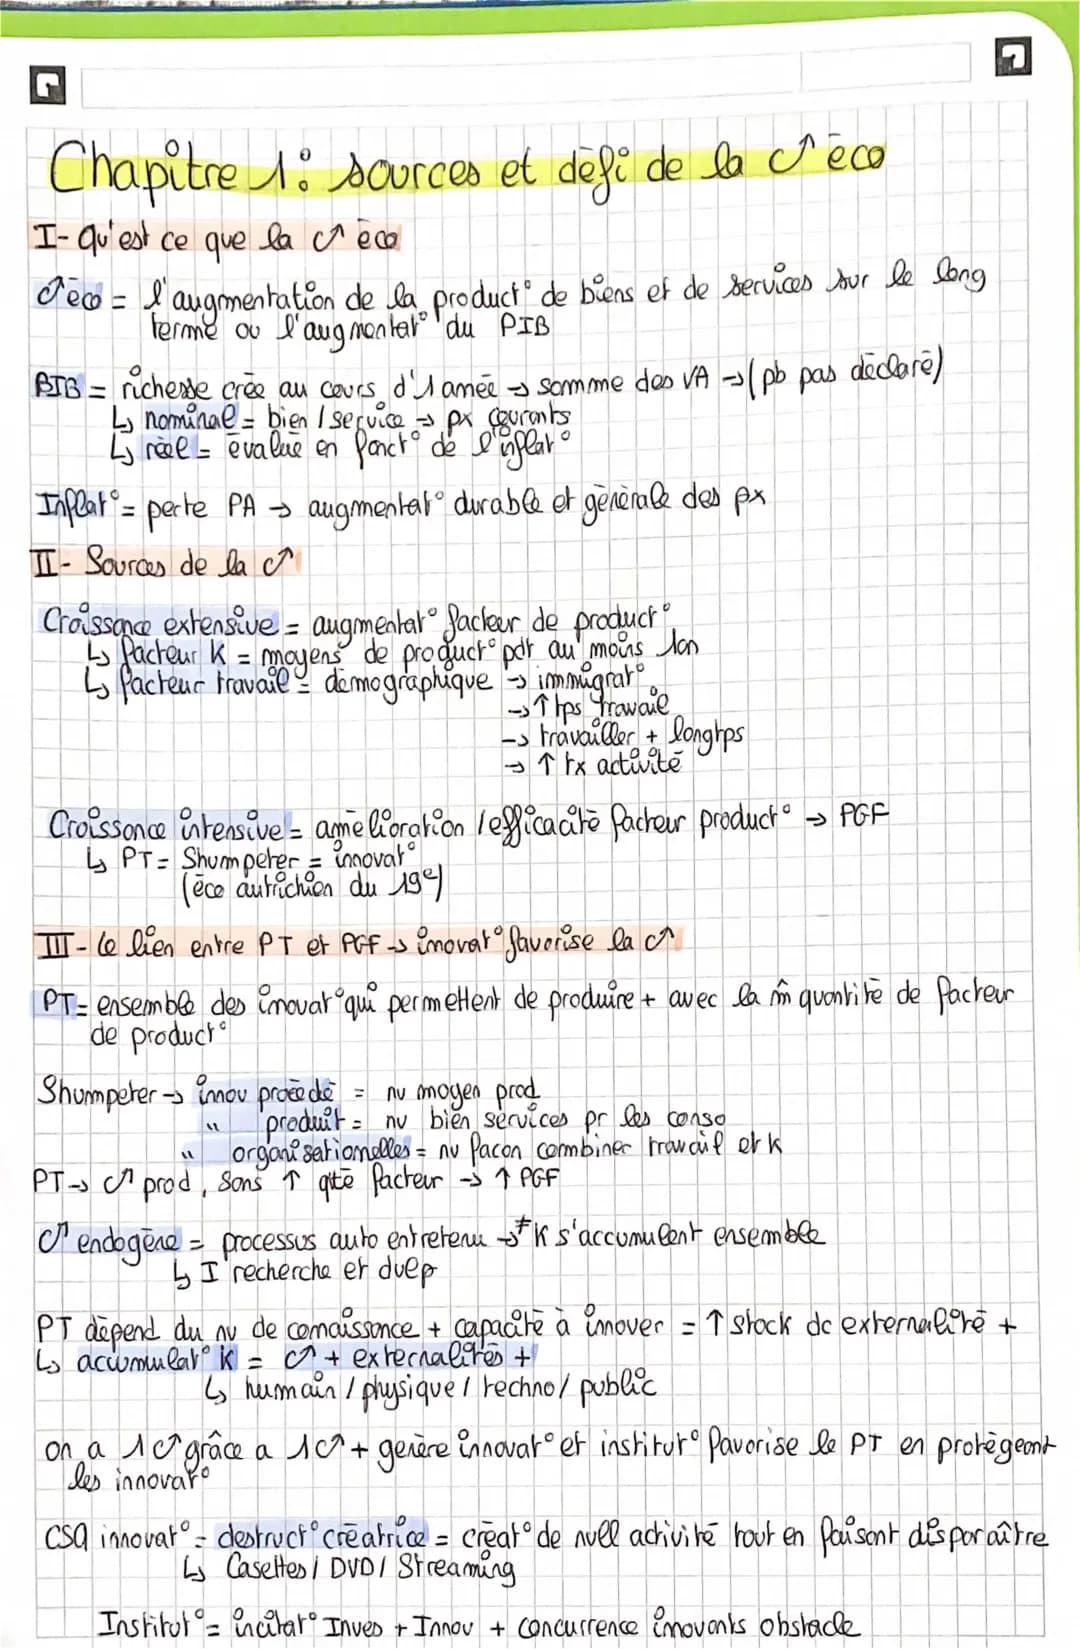 Chapître 1 : sources et défi de la C↗ éco
I- qu'est ce que la C↗ éco
C↗ éco = l'augmentation de la product° de biens et de services sur le long
terme ou l'augmentat° du PIB
PIB = richesse crée au cours d'1 année → somme des VA → (pb pas déclaré)
↳ nominal = bien / service → px courants
↳ réel = évalué en fonct° de l'inflat°
Inflat° = perte PA → augmentat° durable et générale des px
II- Sources de la C↗
Croissance extensive = augmentat° facteur de product°
↳ facteur K = moyens de product° pdt au moins 1an
↳ facteur travail = démographique → immigrat°
→ ↑ tps travail
→ travailler + longtps
→ ↑ tx activité
Croissance intensive = amélioration / efficacité facteur product° → PGF
↳ PT = Shumpeter = innovat°
(éco autrichien du 19e)
III- le lien entre PT et PGF → innovat° favorise la C↗
PT = ensemble des innovat° qui permettent de produire + avec la m̂ quantité de facteur
de product°
Shumpeter → innov procédé = nv moyen prod
" produit = nv bien services pr les conso
" organisationelles = nv façon combiner travail et k
PT → C↗ prod, sans ↑ qité facteur → ↑ PGF
C↗ endogène = processus auto entretenu → ≠ K s'accumulent ensemble
↳ I recherche et dvep
PT dépend du nv de connaissance + capacité à innover = ↑ stock dc externalité +
↳ accumulat° K = C↗ + externalités +
↳ humain / physique / techno / public
on a 1C↗ grâce a 1C↗ + genère innovat° et institut° favorise le PT en protégeant
les innovat°
CSQ innovat° = destruct° créatrice = créat° de nvell activité tout en faisant disparaître
↳ Casettes / DVD / Streaming
Institut° = incitat° Inves + Innov + concurrence innovants obstacle